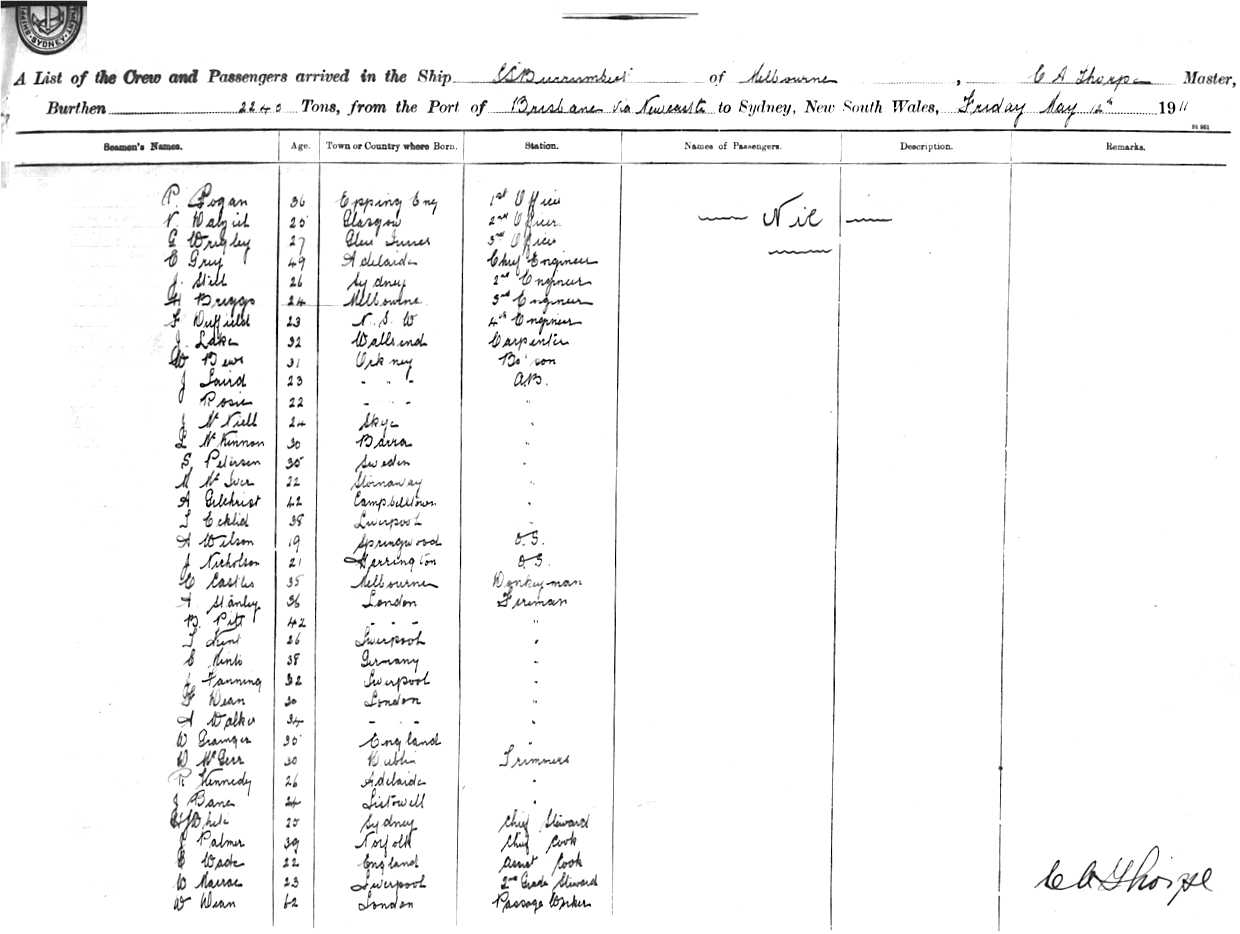 SYDNEY
A List of the Crew and Passengers arrived in the Ship SS Burrumbeet of Melbourne, C A Thorpe Master,
Burthen 2240 Tons, from the Port of Brisbane via Newcastle to Sydney, New South Wales, Friday May 12th 1911
Seamen's Names. Age. Town or Country where Born. Station. Names of Passengers. Description. Remarks.
P. Logan 36 Epping Eng 1st Officer
Dalziel 25 Glasgow 2nd Officer Nil
G Wrigley 27 Glen Innes 3rd Officer
C Grey 49 Adelaide Chief Engineer
J. Still 26 Sydney 2nd Engineer
H Briggs 24 Melbourne 3rd Engineer
F Duffield 23 N. S. W 4th Engineer
J. Lake 32 Wallsend Carpenter
W Bews 31 Orkney Bo'son
J Laird 23 - - - AB.
J Rosie 22 - - - "
J McNiell 24 Skye "
L McKinnon 30 Barra "
S. Petersen 35 Sweden "
M McIver 22 Stornaway "
A Gilchrist 42 Campbelltown "
38 Liverpool "
A Wilson 19 Springwood O.S.
J Nicholson 21 Harrington O.S.
C Castles 35 Melbourne Donkeyman
A Stanley 36 London Fireman
B. Pitt 42 - - - "
T Kent 26 Liverpool "
38 Germany "
J Fanning 32 Liverpool "
F Dean 30 London "
A Walker 34 - - - "
W Grainger 35 England "
D McGerr 30 Dublin Trimmers
R Kennedy 26 Adelaide "
J Bane 24 Listowell "
White 25 Sydney Chief Steward
J Palmer 39 Norfolk Chief Cook
E Wade 22 England Assist Cook
W Macrae 23 Liverpool 2nd Grade Steward
W Dean 62 London Passage Worker
C A Thorpe